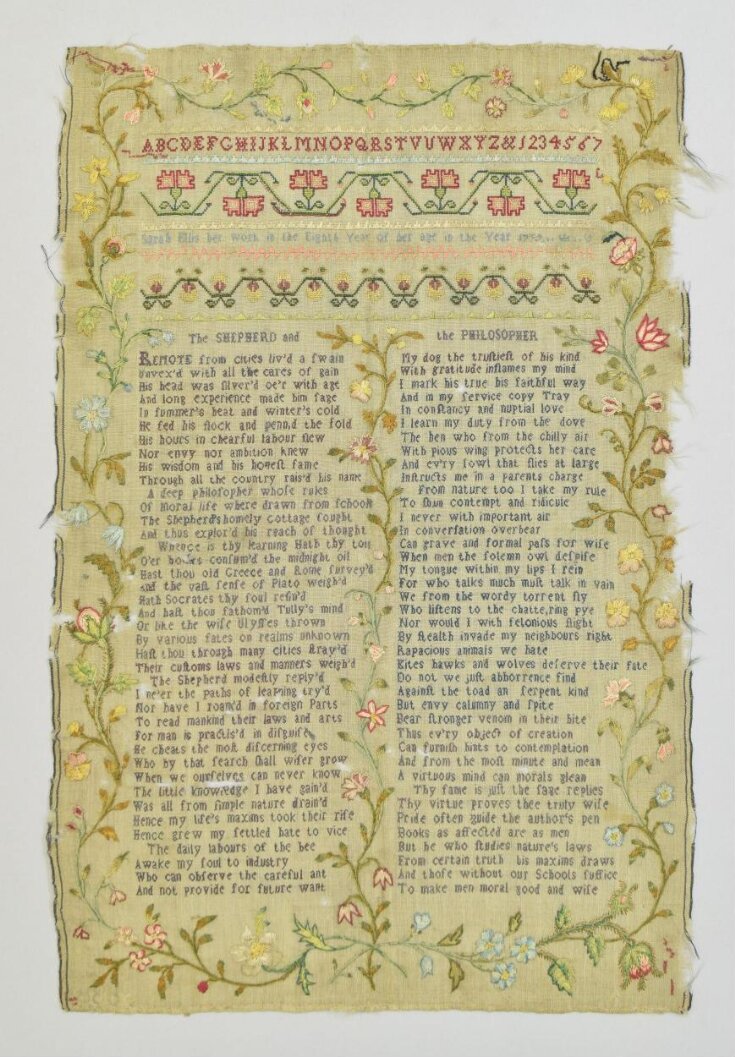 ABCDEFGHIJKLMNOPQRSTVUWXYZ&1234567
Sarah Ellis her work in the Eighth Year of her age in the Year
The SHEPHERD and
REMOTE from cities liv'd a ſwain
Unvex'd with all the cares of gain
His head was ſilver'd oe'r with age
And long experience made him ſage
In ſummer's heat and winter's cold
He fed his flock and penn,d the fold
His hours in chearful labour flew
Nor envy nor ambition knew
His wisdom and his honeſt fame
Through all the country rais'd his name
A deep philoſopher whoſe rules
Of moral life where drawn from ſchools
The Shepherd's homely cottage ſought
And thus explor'd his reach of thought
Whence is thy learning Hath thy toil
O'er books conſum'd the midnight oil
Hast thou old Greece and Rome ſurvey'd
And the vaſt ſenſe of Plato weigh'd
Hath Socrates thy ſoul refin'd
And haſt thou fathom'd Tully's mind
Or like the wiſe Ulyſſes thrown
By various fates on realms unknown
Haſt thou through many cities ſtray'd
Their cuſtoms laws and manners weigh'd
The Shepherd modeſtly reply'd
I ne'er the paths of learning try'd
Nor have I roam'd in foreign Parts
To read mankind their laws and arts
For man is practis'd in diſguiſe
He cheats the moſt diſcerning eyes
Who by that ſearch ſhall wiſer grow
When we ourſelves can never know
The little knowledge I have gain'd
Was all from ſimple nature drain'd
Hence my life's maxims took their riſe
Hence grew my ſettled hate to vice
The daily labours of the bee
Awake my ſoul to induſtry
Who can obſerve the careful ant
And not provide for future want
the PHILOSOPHER
My dog the truſtieſt of his kind
With gratitude inflames my mind
I mark his true his faithful way
And in my ſervice copy Tray
In conſtancy and nuptial love
I learn my duty from the dove
The hen who from the chilly air
With pious wing protects her care
And ev'ry fowl that flies at large
Inſtructs me in a parents charge
From nature too I take my rule
To ſhun contempt and ridicule
I never with important air
In converſation overbear
Can grave and formal paſs for wiſe
When men the ſolemn owl deſpiſe
My tongue within my lips I rein
For who talks much muſt talk in vain
We from the wordy torrent fly
Who liſtens to the chatte,ring pye
Nor would I with felonious flight
By ſtealth invade my neighbours right
Rapacious animals we hate
Kites hawks and wolves deſerve their fate
Do not we juſt abhorrence find
Againſt the toad an ſerpent kind
But envy calumny and ſpite
Bear ſtronger venom in their bite
Thus ev'ry object of creation
Can furniſh hints to contemplation
And from the moſt minute and mean
A virtuous mind can morals glean
Thy fame is juſt the ſage replies
Thy virtue proves thee truly wiſe
Pride often guide the author's pen
Books as affected are as men
But he who ſtudies nature's laws
From certain truth his maxims draws
And thoſe without our Schools ſuffice
To make men moral good and wiſe